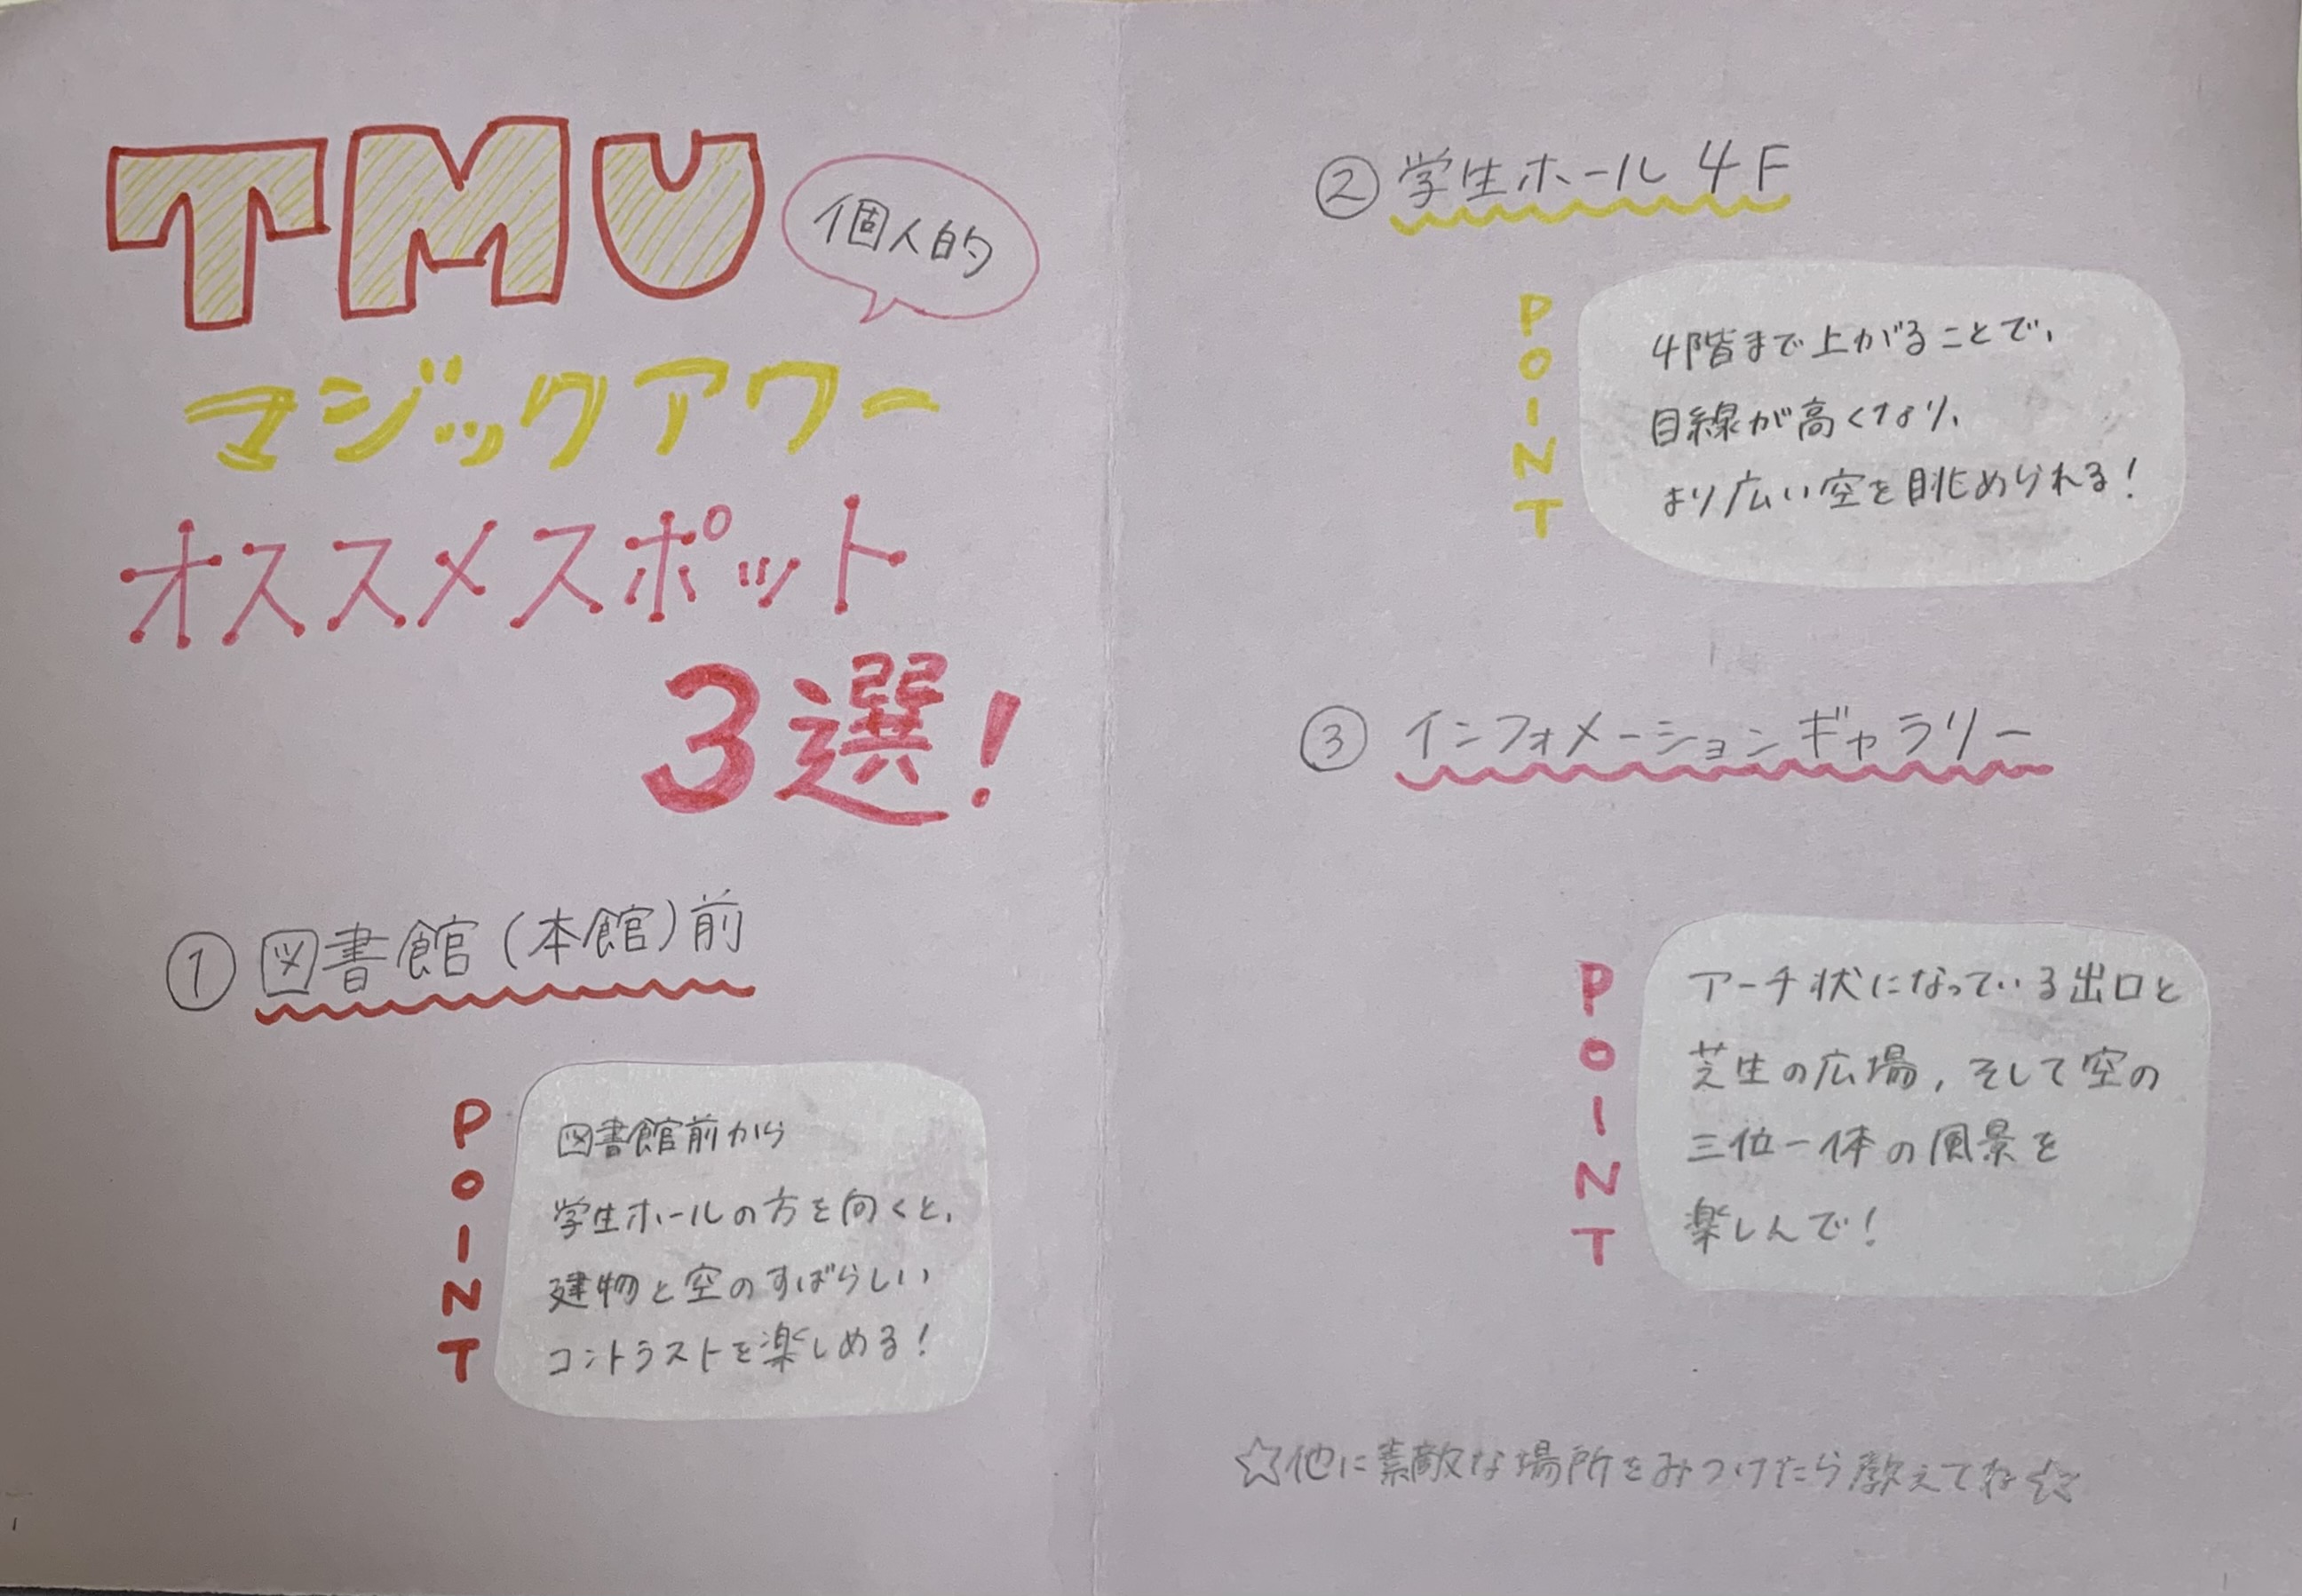 TMU
個人的
マジックアワー
オススメスポット
3選!
① 図書館(本館)前
POINT
図書館前から
学生ホールの方を向くと、
建物と空のすばらしい
コントラストを楽しめる!
② 学生ホール 4F
POINT
4階まで上がることで、
目線が高くなり、
より広い空を眺められる!
③ インフォメーションギャラリー
POINT
アーチ状になっている出口と
芝生の広場,そして空の
三位一体の風景を
楽しんで!
☆他に素敵な場所をみつけたら教えてね☆